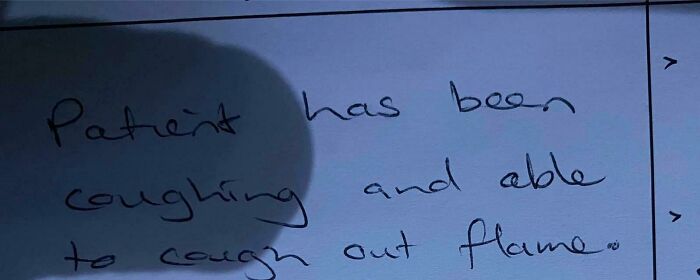 Patient has been
coughing and able
to cough out flame..